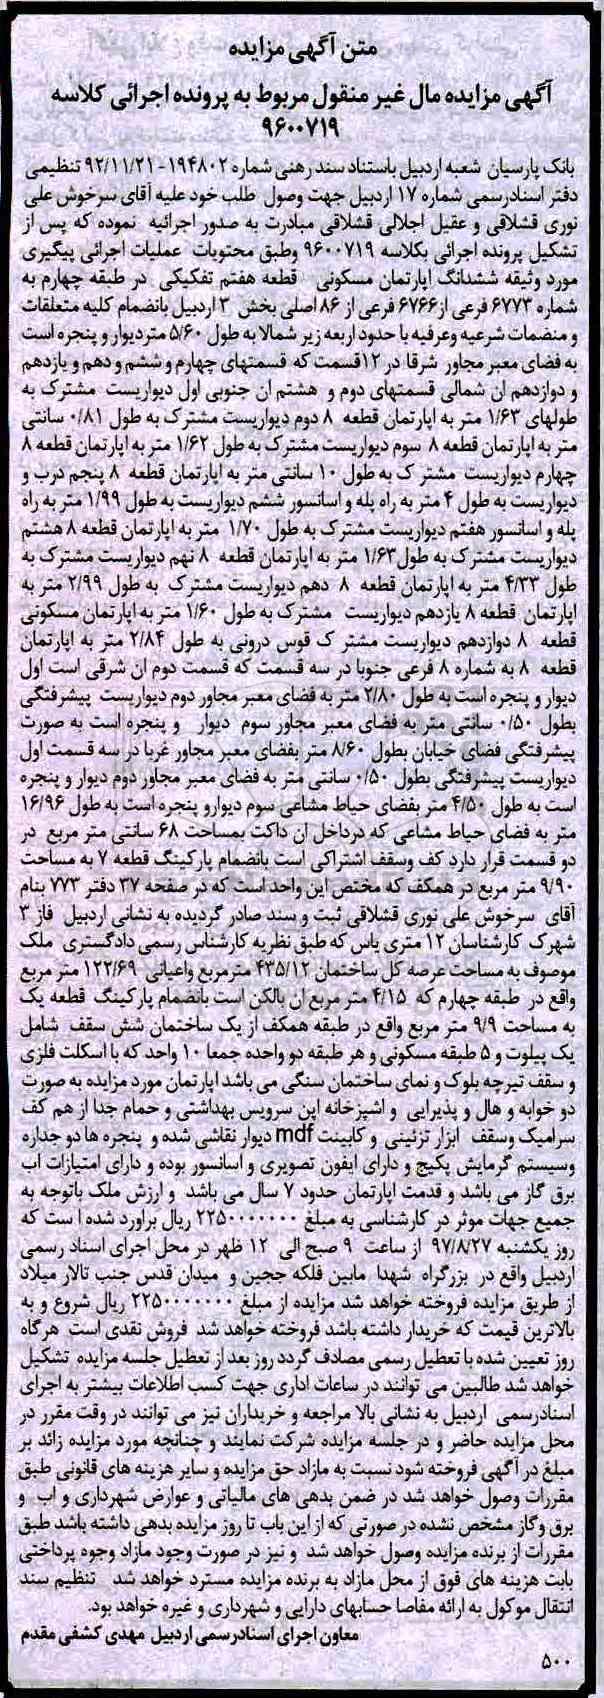 متن آگهی مزایده
آگهی مزایده مال غیر منقول مربوط به پرونده اجرائی کلاسه
۹۶۰۰۷۱۹
بانک پارسیان شعبه اردبیل باستناد سند رهنی شماره ۱۹۴۸۰۲-۹۲/۱۱/۲۱ تنظیمی
دفتر اسنادرسمی شماره ۱۷ اردبیل جهت وصول طلب خود علیه آقای سرخوش علی
نوری قشلاقی و عقیل اجلالی قشلاقی مبادرت به صدور اجرائیه نموده که پس از
تشکیل پرونده اجرائی بکلاسه ۹۶۰۰۷۱۹ وطبق محتویات عملیات اجرائی پیگیری
مورد وثیقه ششدانگ اپارتمان مسکونی قطعه هفتم تفکیکی در طبقه چهارم به
شماره ۶۷۷۳ فرعی از ۶۷۶۶ فرعی از ۸۶ اصلی بخش ۳ اردبیل بانضمام کلیه متعلقات
و منضمات شرعیه وعرفیه با حدود اربعه زیر شمالا به طول ۵/۶۰ متردیوار و پنجره است
به فضای معبر مجاور شرقا در ۱۲قسمت که قسمتهای چهارم و ششم و دهم و یازدهم
و دوازدهم ان شمالی قسمتهای دوم و هشتم ان جنوبی اول دیواریست مشترک به
طولهای ۱/۶۳ متر به اپارتمان قطعه ۸ دوم دیواریست مشترک به طول ۰/۸۱ سانتی
متر به اپارتمان قطعه ۸ سوم دیواریست مشترک به طول ۱/۶۲ متر به اپارتمان قطعه ۸
چهارم دیواریست مشتر ک به طول ۱۰ سانتی متر به اپارتمان قطعه ۸ پنجم درب و
دیواریست به طول ۴ متر به راه پله و اسانسور ششم دیواریست به طول ۱/۹۹ متر به راه
پله و اسانسور هفتم دیواریست مشترک به طول ۱/۷۰ متر به اپارتمان قطعه ۸ هشتم
دیواریست مشترک به طول۱/۶۳ متر به اپارتمان قطعه ۸ نهم دیواریست مشترک به
طول ۴/۳۳ متر به اپارتمان قطعه ۸ دهم دیواریست مشترک به طول ۲/۹۹ متر به
اپارتمان قطعه ۸ یازدهم دیواریست مشترک به طول ۱/۶۰ متر به اپارتمان مسکونی
قطعه ۸ دوازدهم دیواریست مشتر ک قوس درونی به طول ۲/۸۴ متر به اپارتمان
قطعه ۸ به شماره ۸ فرعی جنوبا در سه قسمت که قسمت دوم ان شرقی است اول
دیوار و پنجره است به طول ۲/۸۰ متر به فضای معبر مجاور دوم دیواریست پیشرفتگی
بطول ۰/۵۰ سانتی متر به فضای معبر مجاور سوم دیوار و پنجره است به صورت
پیشرفتگی فضای خیابان بطول ۸/۶۰ متر بفضای معبر مجاور غربا در سه قسمت اول
دیواریست پیشرفتگی بطول ۰/۵۰ سانتی متر به فضای معبر مجاور دوم دیوار و پنجره
است به طول ۴/۵۰ متر بفضای حیاط مشاعی سوم دیوارو پنجره است به طول ۱۶/۹۶
متر به فضای حیاط مشاعی که درداخل ان داکت بمساحت ۶۸ سانتی متر مربع در
دو قسمت قرار دارد کف وسقف اشتراکی است بانضمام پارکینگ قطعه ۷ به مساحت
۹/۹۰ متر مربع در همکف که مختص این واحد است که در صفحه ۳۷ دفتر ۷۷۳ بنام
آقای سرخوش علی نوری قشلاقی ثبت و سند صادر گردیده به نشانی اردبیل فاز ۳
شهرک کارشناسان ۱۲ متری یاس که طبق نظریه کارشناس رسمی دادگستری ملک
موصوف به مساحت عرصه کل ساختمان ۴۳۵/۱۲ مترمربع واعیانی ۱۲۲/۶۹ متر مربع
واقع در طبقه چهارم که ۴/۱۵ متر مربع ان بالکن است بانضمام پارکینگ قطعه یک
به مساحت ۹/۹ متر مربع واقع در طبقه همکف از یک ساختمان شش سقف شامل
یک پیلوت و ۵ طبقه مسکونی و هر طبقه دو واحده جمعا ۱۰ واحد که با اسکلت فلزی
و سقف تیرچه بلوک و نمای ساختمان سنگی می باشد اپارتمان مورد مزایده به صورت
دو خوابه و هال و پذیرایی و اشپزخانه اپن سرویس بهداشتی و حمام جدا از هم کف
سرامیک وسقف ابزار تزئینی و کابینت mdf دیوار نقاشی شده و پنجره ها دو جداره
وسیستم گرمایش پکیج و دارای ایفون تصویری و اسانسور بوده و دارای امتیازات اب
برق گاز می باشد و قدمت اپارتمان حدود ۷ سال می باشد و ارزش ملک باتوجه به
جمیع جهات موثر در کارشناسی به مبلغ ۲۲۵۰۰۰۰۰۰۰ ریال براورد شده ا ست که
روز یکشنبه ۹۷/۸/۲۷ از ساعت ۹ صبح الی ۱۲ ظهر در محل اجرای اسناد رسمی
اردبیل واقع در بزرگراه شهدا مابین فلکه ججین و میدان قدس جنب تالار میلاد
از طریق مزایده فروخته خواهد شد مزایده از مبلغ ۲۲۵۰۰۰۰۰۰۰ ریال شروع و به
بالاترین قیمت که خریدار داشته باشد فروخته خواهد شد فروش نقدی است هرگاه
روز تعیین شده با تعطیل رسمی مصادف گردد روز بعد از تعطیل جلسه مزایده تشکیل
خواهد شد طالبین می توانند در ساعات اداری جهت کسب اطلاعات بیشتر به اجرای
اسنادرسمی اردبیل به نشانی بالا مراجعه و خریداران نیز می توانند در وقت مقرر در
محل مزایده حاضر و در جلسه مزایده شرکت نمایند و چنانچه مورد مزایده زائد بر
مبلغ در آگهی فروخته شود نسبت به مازاد حق مزایده و سایر هزینه های قانونی طبق
مقررات وصول خواهد شد در ضمن بدهی های مالیاتی و عوارض شهرداری و اب و
برق وگاز مشخص نشده در صورتی که از این باب تا روز مزایده بدهی داشته باشد طبق
مقررات از برنده مزایده وصول خواهد شد و نیز در صورت وجود مازاد وجوه پرداختی
بابت هزینه های فوق از محل مازاد به برنده مزایده مسترد خواهد شد تنظیم سند
انتقال موکول به ارائه مفاصا حسابهای دارایی و شهرداری و غیره خواهد بود.
معاون اجرای اسنادرسمی اردبیل مهدی کشفی مقدم
۵۰۰